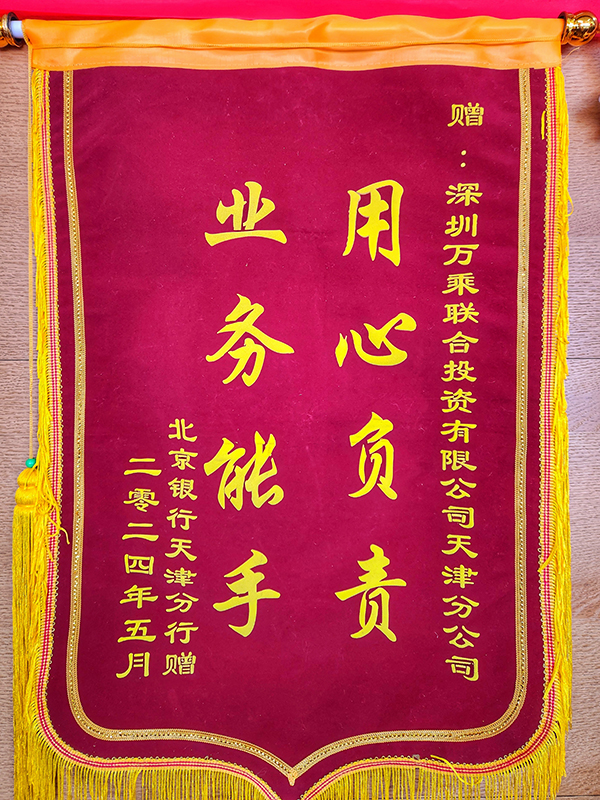 赠：深圳万乘联合投资有限公司天津分公司
用心负责
业务能手
北京银行天津分行赠
二零二四年五月